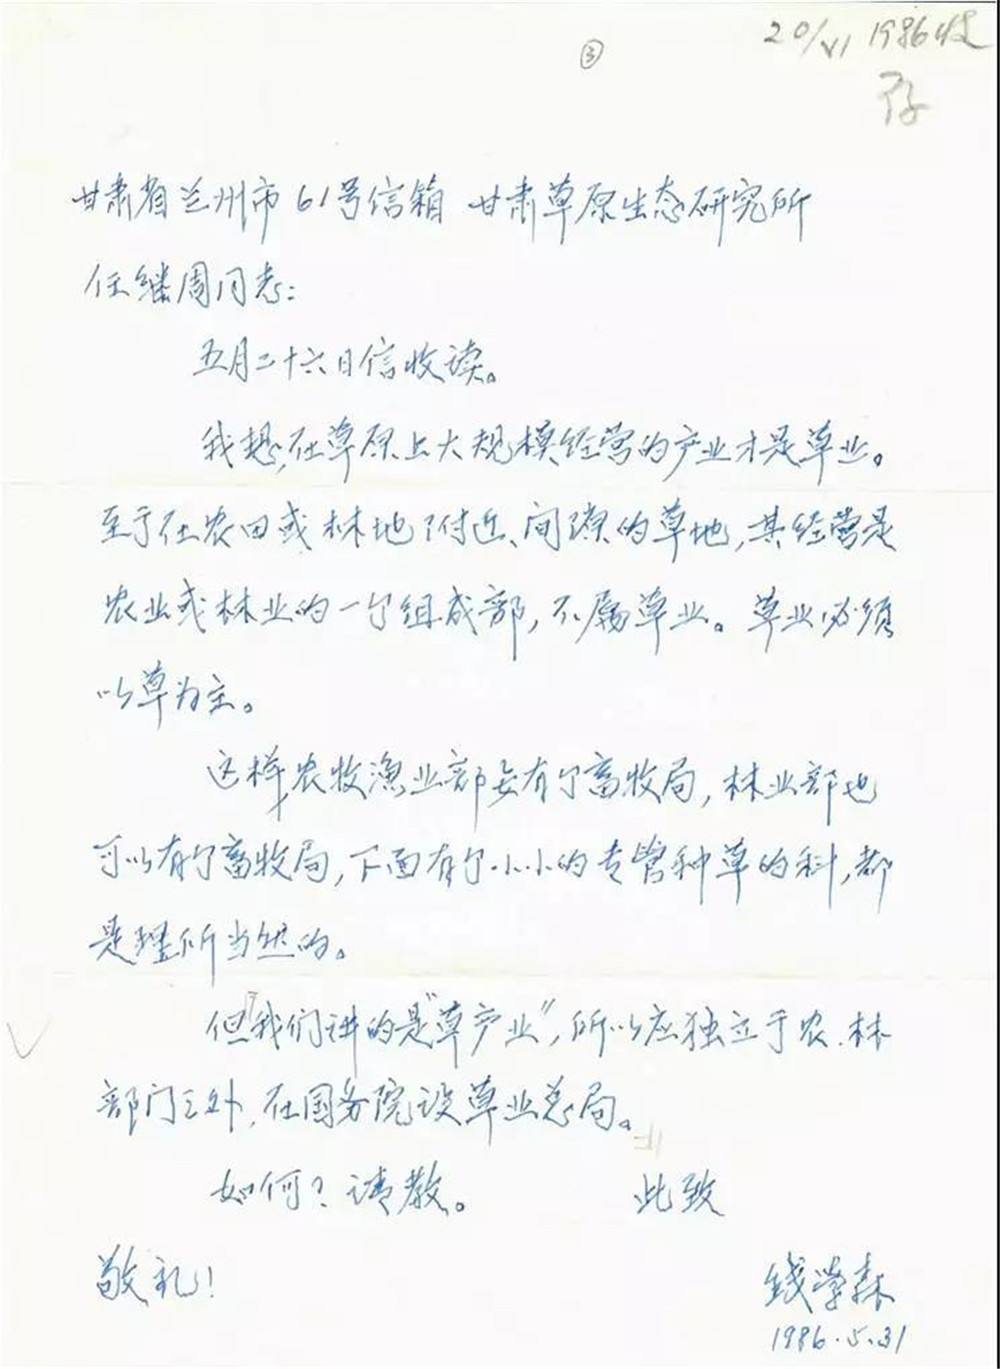 20/VI 1986收
存
③
甘肃省兰州市61号信箱 甘肃草原生态研究所
任继周同志：
五月二十六日信收读。
我想，在草原上大规模经营的产业才是草业。
至于在农田或林地附近、间隙的草地，其经营是
农业或林业的一个组成部，不属草业。草业必须
以草为主。
这样，农牧渔业部要有个畜牧局，林业部也
可以有个畜牧局，下面有个小小的专管种草的科，都
是理所当然的。
但我们讲的是“草产业”，所以应独立于农、林
部门之外，在国务院设草业总局。
如何？请教。 此致
敬礼！
钱学森
1986.5.31